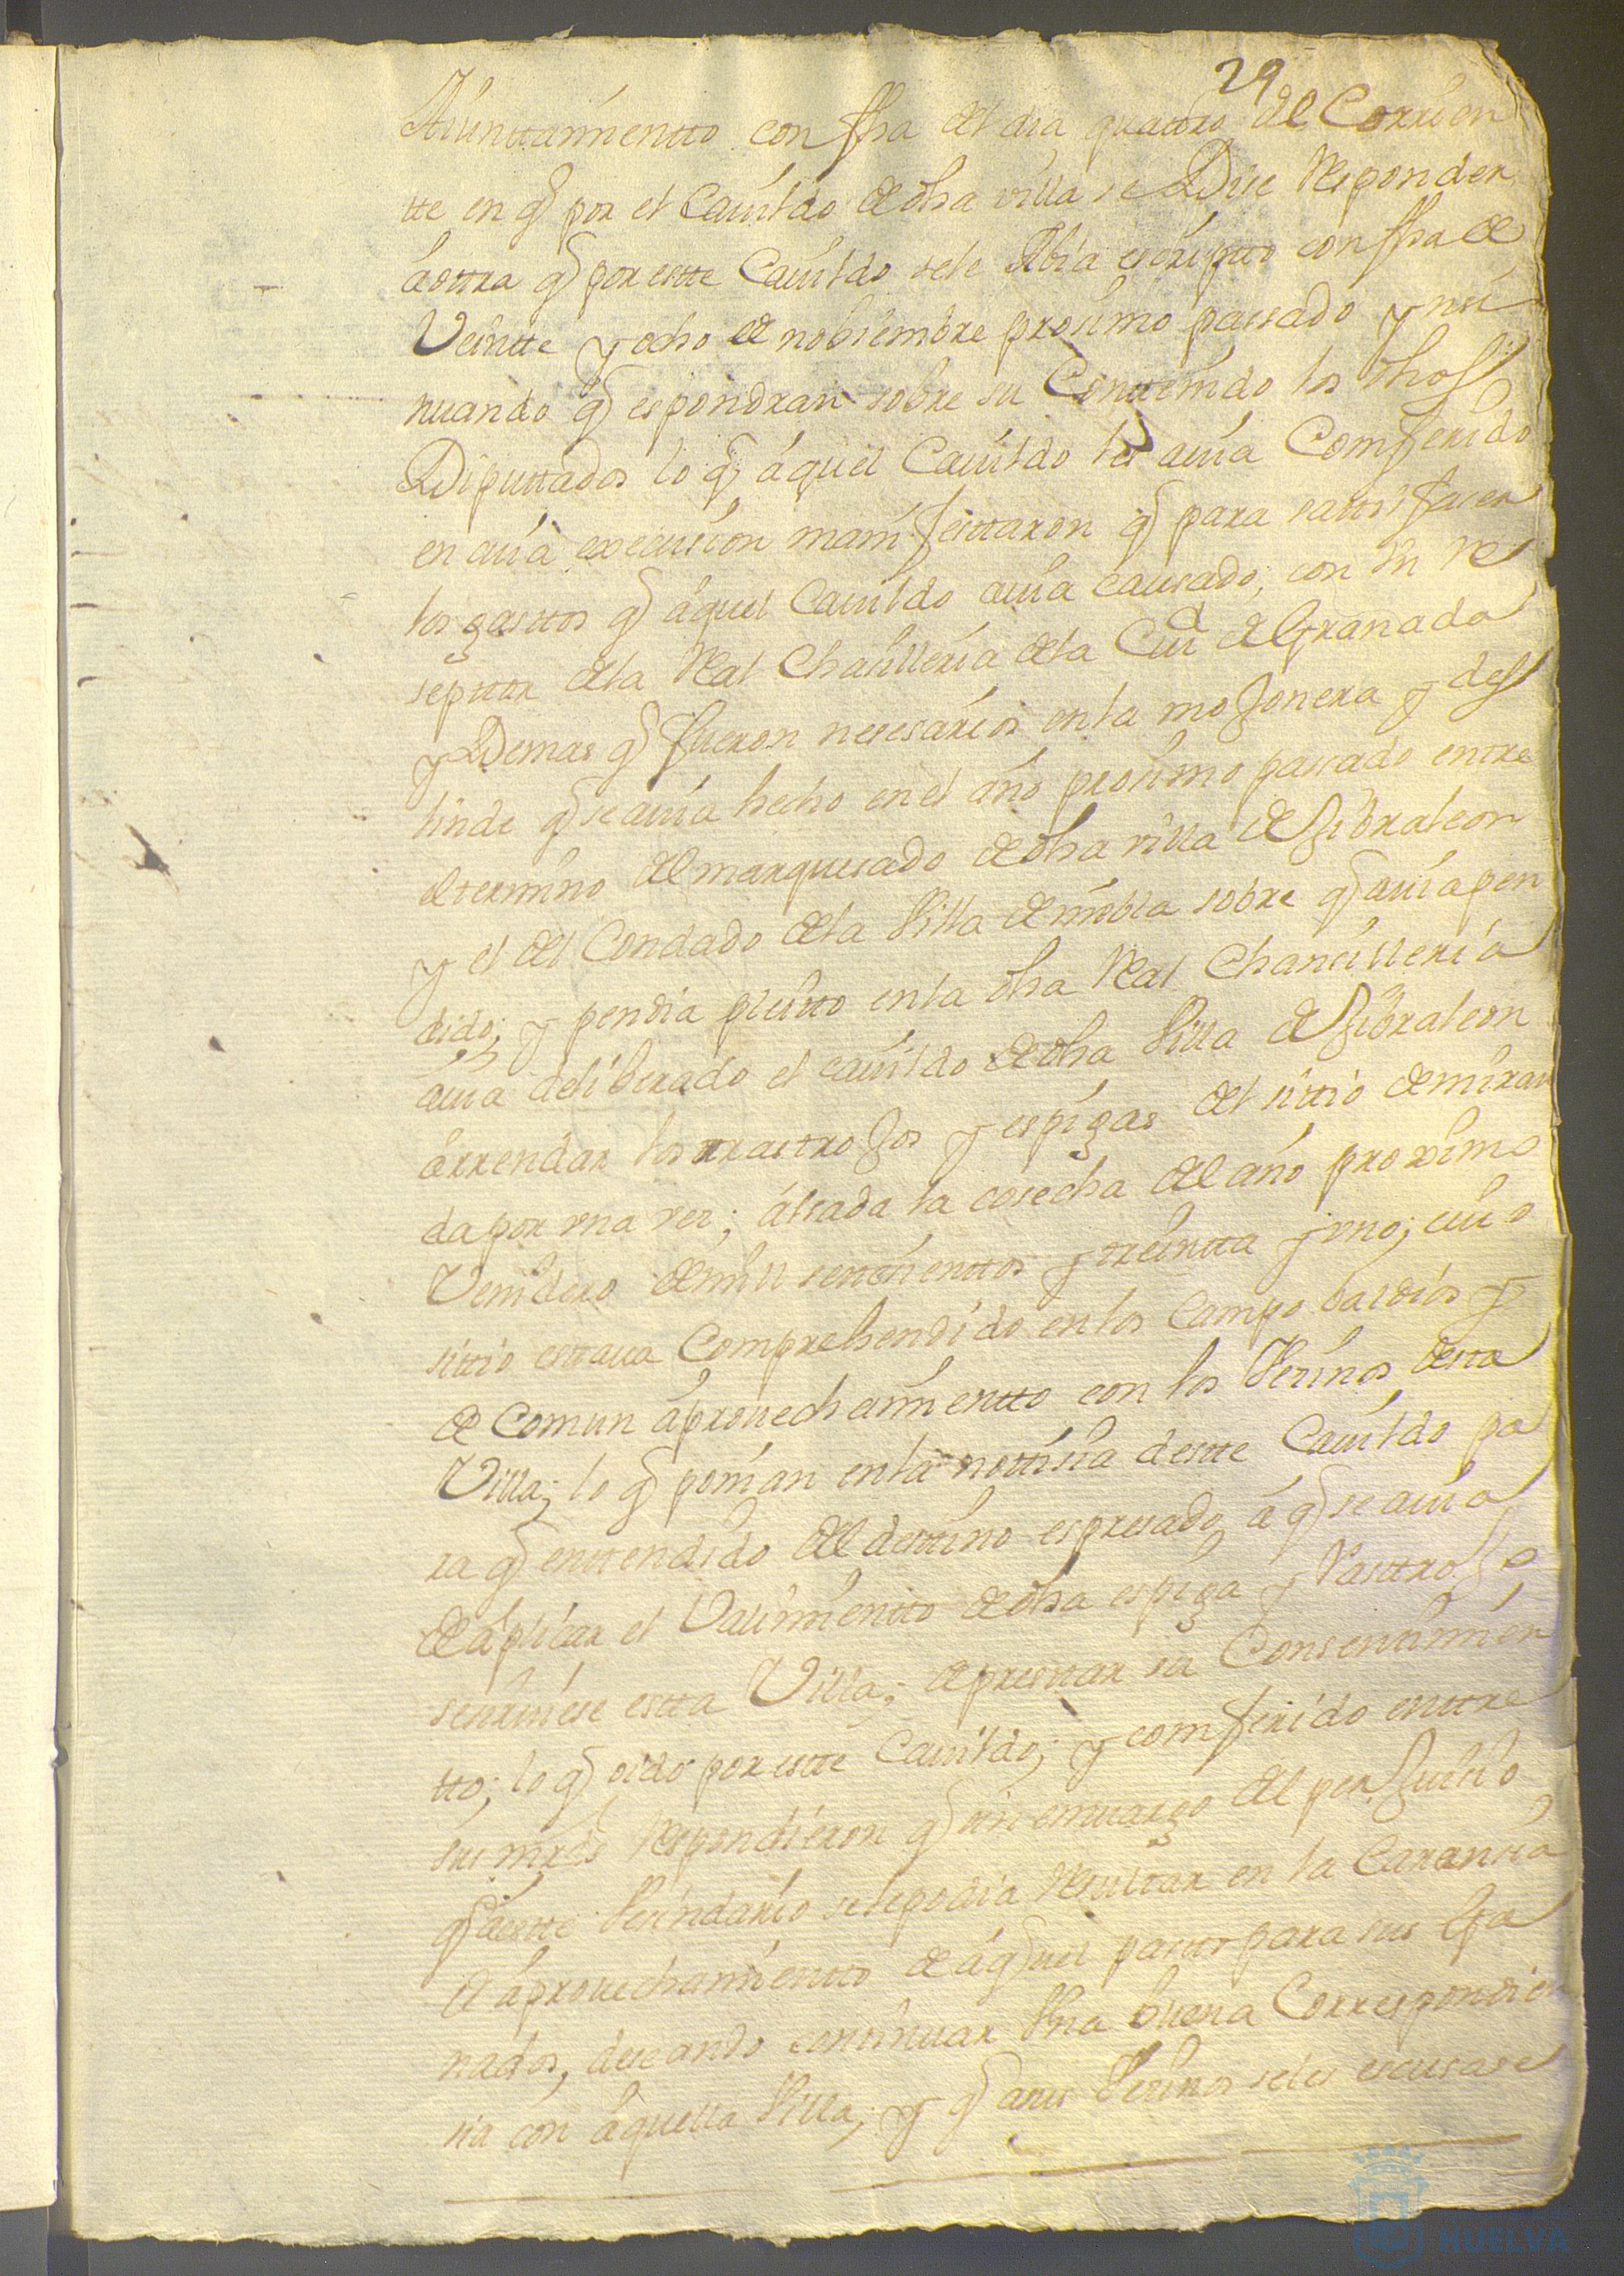 29
Aiunttamientto con fha del dia quattro del Corrien
tte en q̃ por el Cauildo de dha villa se Dise Responder
á ottra q̃ por estte Cauildo se le Abia escriptto con fha de
Veintte y ocho de nobiembre prosimo passado y nsi
nuando q̃ espondran sobre su Contenido los dhos
Diputtados lo q̃ áquel Cauildo les auia Comferido
en cuia execusion manifesttaron q̃ para sattisfaser
los gasttos q̃ áquel Cauildo auia causado, con Un Re
septtor de la Real Chansilleria de la Ciud de Granada
y Demas q̃ fueron nesesarios en la mojonera y des
linde q̃ se auia hecho en el año prosimo passado entre
el termino del marquesado de dha villa de Jibraleon
y el del Condado de la Villa de niebla sobre q̃ auia pen
dido; y pendia pleitto en la dha Real Chansilleria
áuia deliberado el cauildo de dha Villa de Jibraleon
árrendar los rrastrojos y espigas del sittio de miran
da por vna vez; álsada la cosecha del año proximo
Venidero de mill settesienttos y treintta y vno; cuio
sittio esttaua Comprehendido en los Campo baldios y
de Comun áprouechamientto con los Vezinos desta
Villa; lo q̃ ponian en la nottisia destte Cauildo pa
ra q̃ enttendido del desttino espresado á q̃ se auia
de áplicar el Valimientto de dha espiga y Rasttrojo
se siruiese estta Villa; de presttar su Consentimien
tto; lo q̃ oido por estte Cauildo; y comferido enttre
sus mrds Respondieron q̃ sin embargo del perjuisio
q̃ á estte Vesindario se le podia Resulttar en la Carensia
del áprouechamientto de áquel pastto para sus Gga
nados, deseando continuar Vna buena Correspondien
sia con áquella Villa; y q̃ a sus Vezinos se les escusase
HUELVA